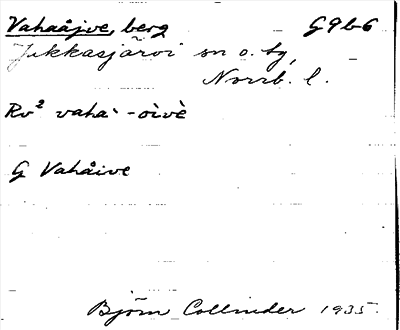 Vahaåjve, berg G9b6
Jukkasjärvi sn o. tg,
Norrb. l.
Rv² vaha` -oìvè
G Vahåive
Björn Collinder 1935.